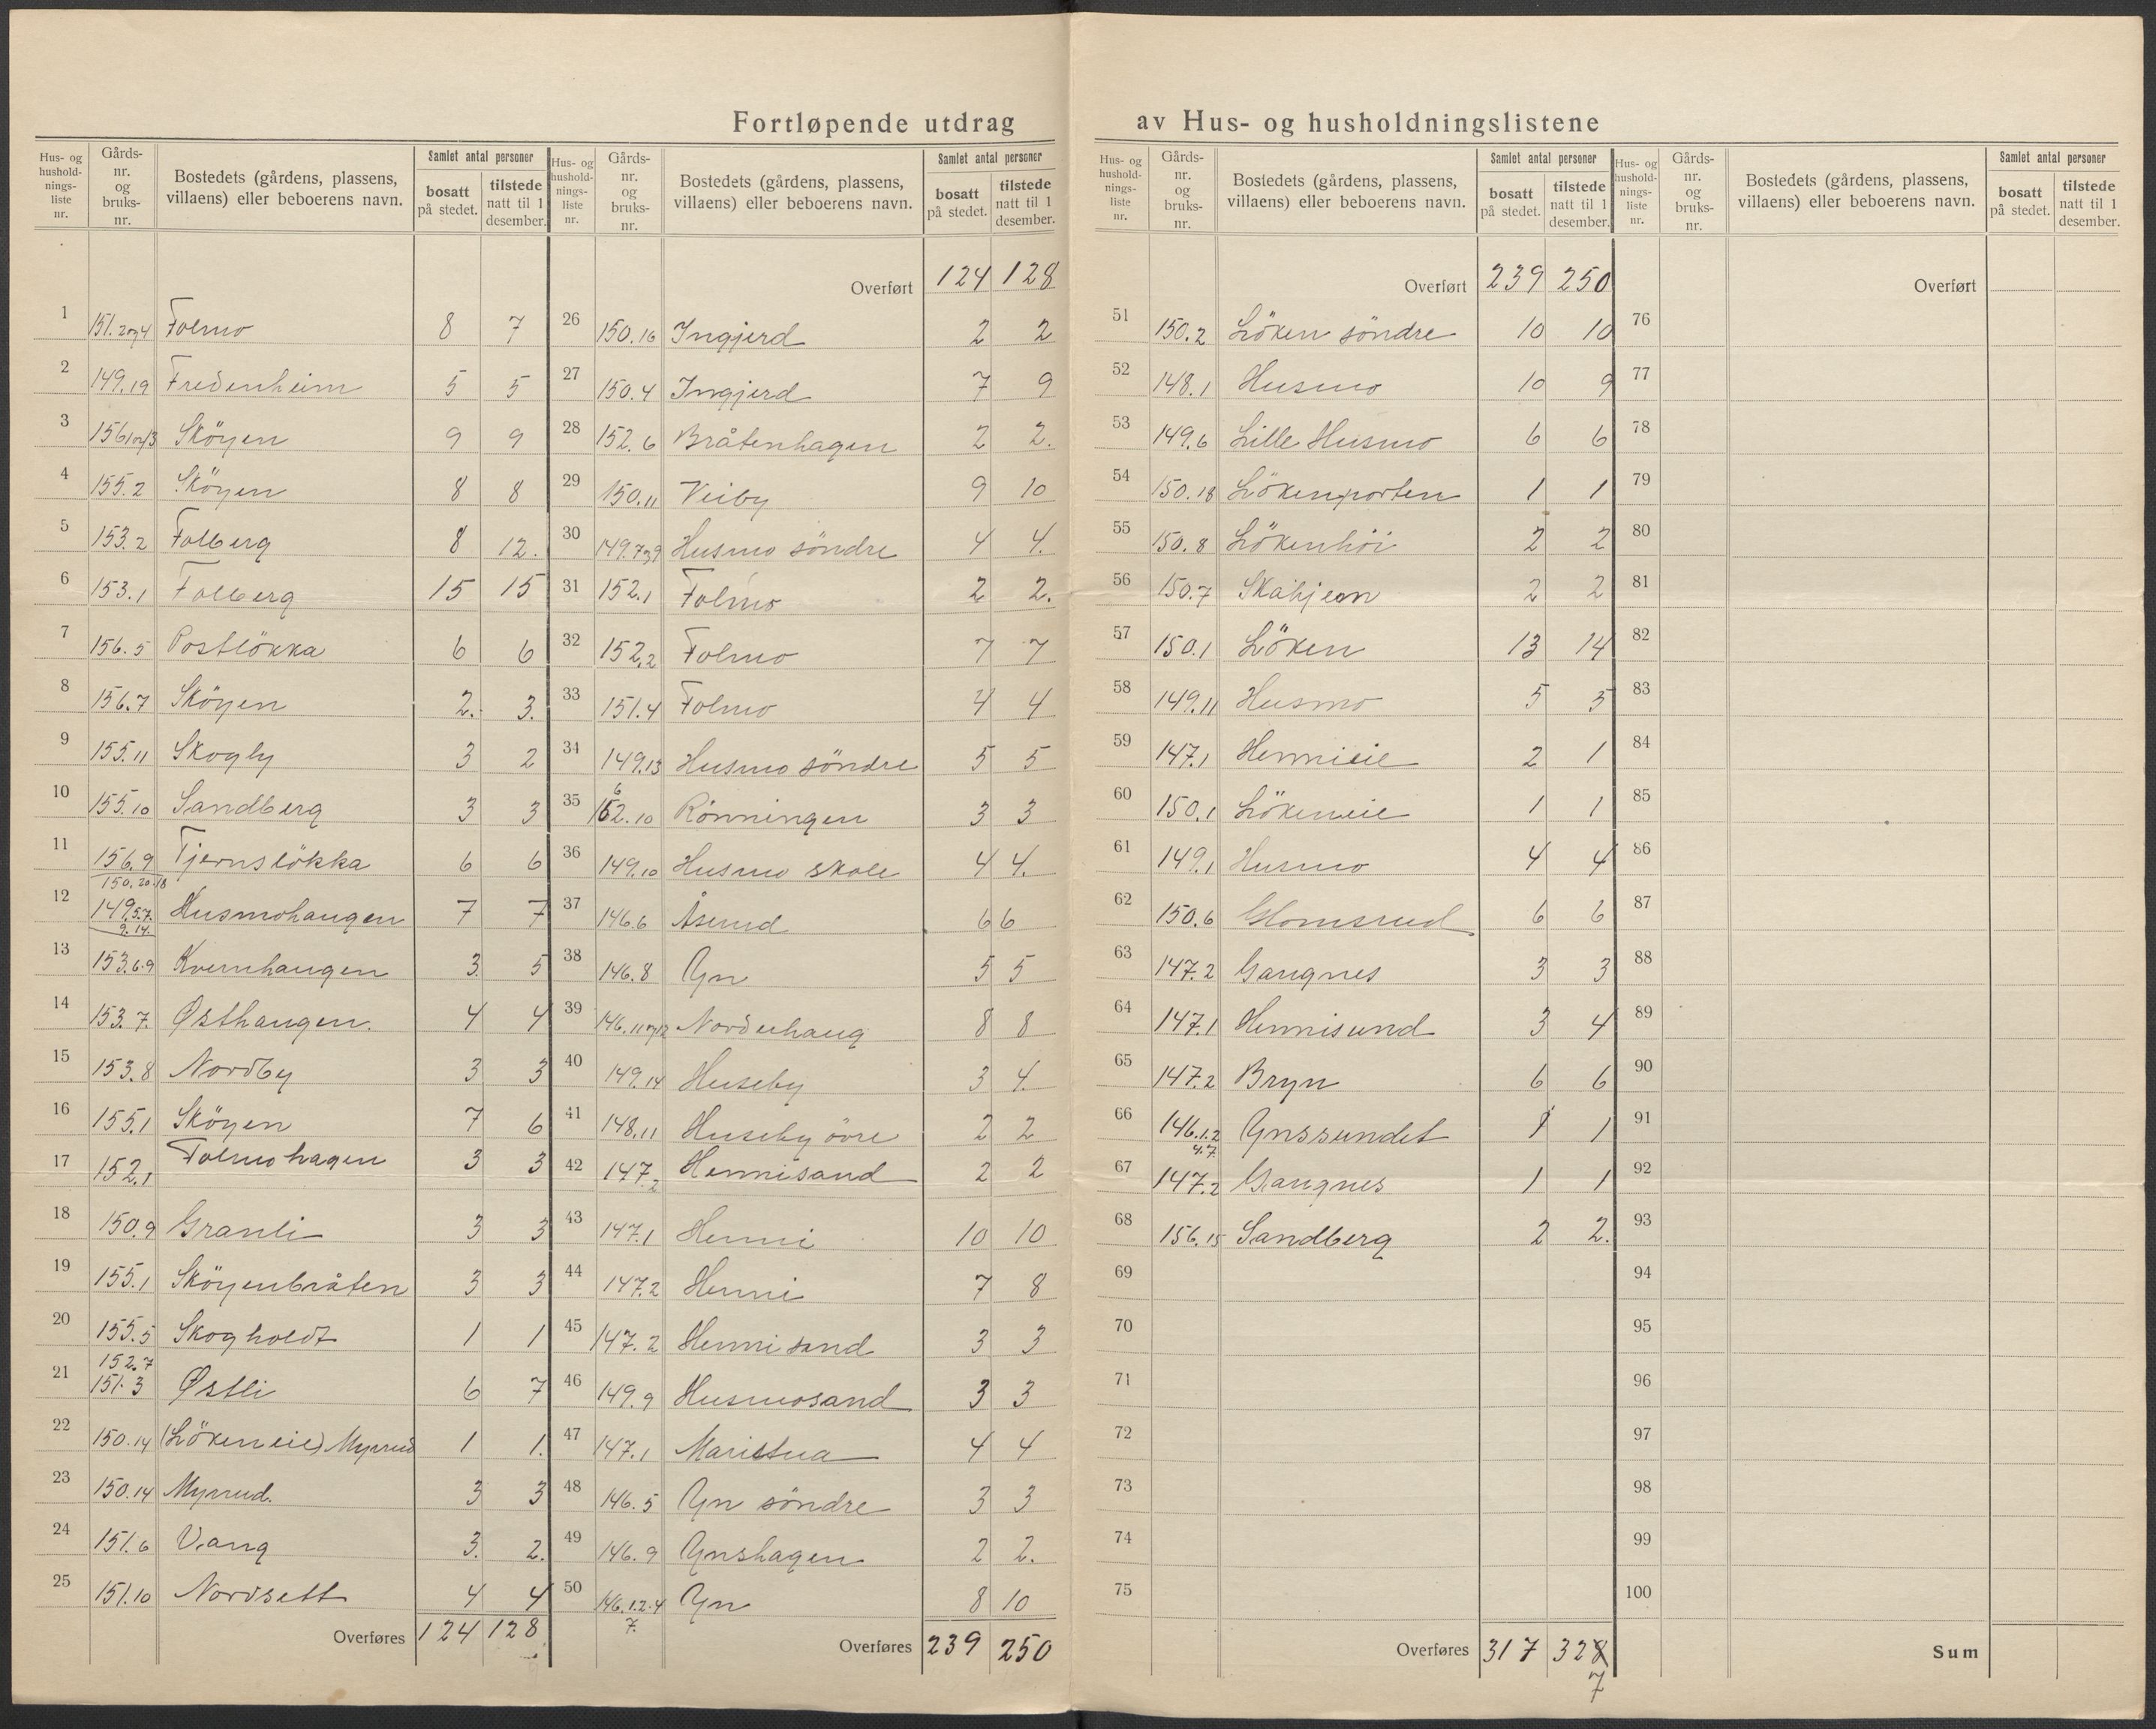 Fortløpende utdrag av Hus- og husholdningslistene
Hus- og hushold-nings-liste nr. Gårds-nr. og bruks-nr. Bostedets (gårdens, plassens, villaens) eller beboerens navn. Samlet antal personer bosatt på stedet. tilstede natt til 1 desember.
1 151.2og4 Folmo 8 7
2 149.19 Fredenheim 5 5
3 156.1og13 Sköyen 9 9
4 155.2 Sköyen 8 8
5 153.2 Folberg 8 12.
6 153.1 Folberg 15 15
7 156.5 Postlökka 6 6
8 156.7 Sköyen 2. 3.
9 155.11 Skogly 3 2
10 155.10 Sandberg 3 3
11 156.9 Tjernslökka 6 6
150.20.18
12 149.5.7. Husmohaugen 7 7
9.14.
13 153.6.9 Kvernhaugen 3 5
14 153.7. Østhaugen. 4 4
15 153.8 Nordby 3 3
16 155.1 Sköyen 7 6
17 152.1 Folmohagen 3 3
18 150.9 Granli 3 3
19 155.1 Sköyenbråten 3 3
20 155.5 Skogholdt 1 1
152.7
21 151.3 Østli 6 7
22 150.14 (Lökeneie) Myrrud 1 1.
23 150.14 Myrrud. 3 3
24 151.6 Vang 3. 2.
25 151.10 Nordsett 4 4
Overføres 124 128
Hus- og hushold-nings-liste nr. Gårds-nr. og bruks-nr. Bostedets (gårdens, plassens, villaens) eller beboerens navn. Samlet antal personer bosatt på stedet. tilstede natt til 1 desember.
Overført 124 128
26 150.16 Ingjerd 2 2
27 150.4 Ingjerd 7 9
28 152.6 Bråtenhagen 2 2.
29 150.11 Veiby 9 10
30 149.7og9 Husmo söndre 4 4.
31 152.1 Folmo 2 2.
32 152.2 Folmo 7 7
33 151.4 Folmo 4 4
34 149.13 Husmo söndre 5 5
35 152.10 Rönningen 3 3
36 149.10 Husmo skole 4 4.
37 146.6 Åserud 6 6
38 146.8 Gn 5 5
39 146.11og12 Norderhaug 8 8
40 149.14 Huseby 3 4.
41 148.11 Huseby övre 2 2
42 147.2 Hennisand 2 2
43 147.1 Henni 10 10
44 147.2 Henni 7 8
45 147.2 Hennisand 3 3
46 149.9 Husmosand 3 3
47 147.1 Maristua 4 4
48 146.5 Gn söndre 3 3
49 146.9 Gnshagen 2 2.
50 146.1.2.4 Gn 8 10
7.
Overføres 239 250
Hus- og hushold-nings-liste nr. Gårds-nr. og bruks-nr. Bostedets (gårdens, plassens, villaens) eller beboerens navn. Samlet antal personer bosatt på stedet. tilstede natt til 1 desember.
Overført 239 250
51 150.2 Löken söndre 10 10
52 148.1 Husmo 10 9
53 149.6 Lille Husmo 6 6
54 150.18 Lökenporten 1 1
55 150.8 Lökenhöi 2 2
56 150.7 2 2
57 150.1 Löken 13 14
58 149.11 Husmo 5 5
59 147.1 Hennieie 2 1
60 150.1 Lökeneie 1 1
61 149.1 Husmo 4 4
62 150.6 Glomsrud 6 6
63 147.2 Gangnes 3 3
64 147.1 Hennisund 3 4
65 147.2 Bryn 6 6
66 146.1.2 Gnssundet 1 1
4.7.
67 147.2 Gangnes 1 1
68 156.15 Sandberg 2 2.
69
70
71
72
73
74
75
Overføres 317 328
7
Hus- og hushold-nings-liste nr. Gårds-nr. og bruks-nr. Bostedets (gårdens, plassens, villaens) eller beboerens navn. Samlet antal personer bosatt på stedet. tilstede natt til 1 desember.
Overført
76
77
78
79
80
81
82
83
84
85
86
87
88
89
90
91
92
93
94
95
96
97
98
99
100
Sum